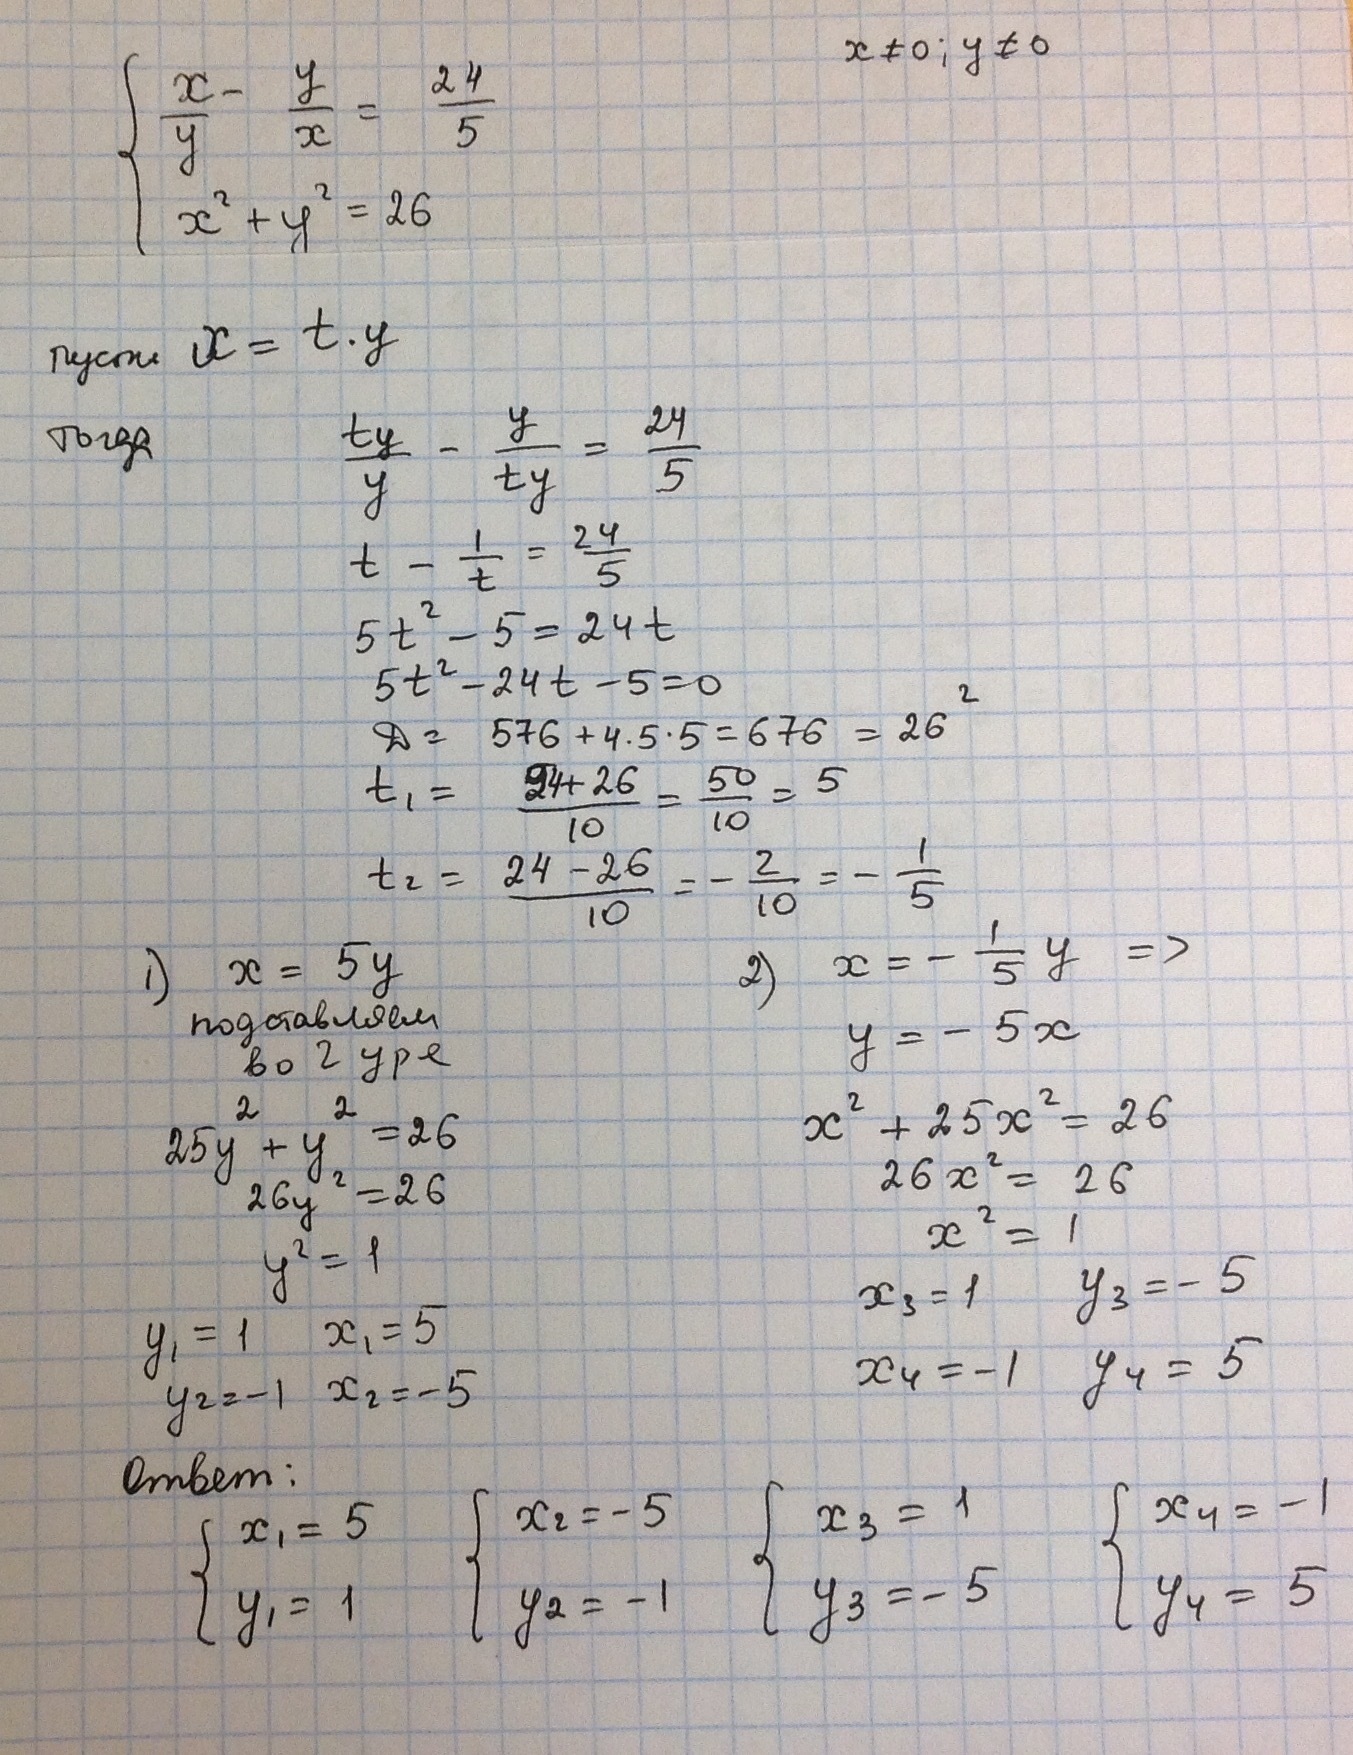 x ≠ 0; y ≠ 0
x/y - y/x = 24/5
x² + y² = 26
пусть x = t·y
тогда ty/y - y/ty = 24/5
t - 1/t = 24/5
5t² - 5 = 24t
5t² - 24t - 5 = 0
D = 576 + 4·5·5 = 676 = 26²
t₁ = (24+26)/10 = 50/10 = 5
t₂ = (24-26)/10 = -2/10 = -1/5
1) x = 5y
подставляем
во 2 ур-е
25y² + y² = 26
26y² = 26
y² = 1
y₁ = 1 x₁ = 5
y₂ = -1 x₂ = -5
2) x = -1/5 y =>
y = -5x
x² + 25x² = 26
26x² = 26
x² = 1
x₃ = 1 y₃ = -5
x₄ = -1 y₄ = 5
Ответ:
x₁ = 5 x₂ = -5 x₃ = 1 x₄ = -1
y₁ = 1 y₂ = -1 y₃ = -5 y₄ = 5